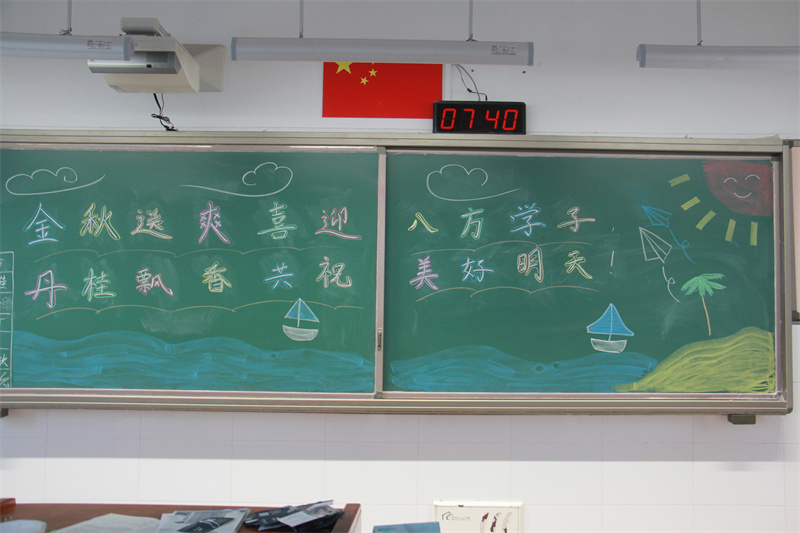 07 40
金秋送爽喜迎八方学子
丹桂飘香共祝美好明天！